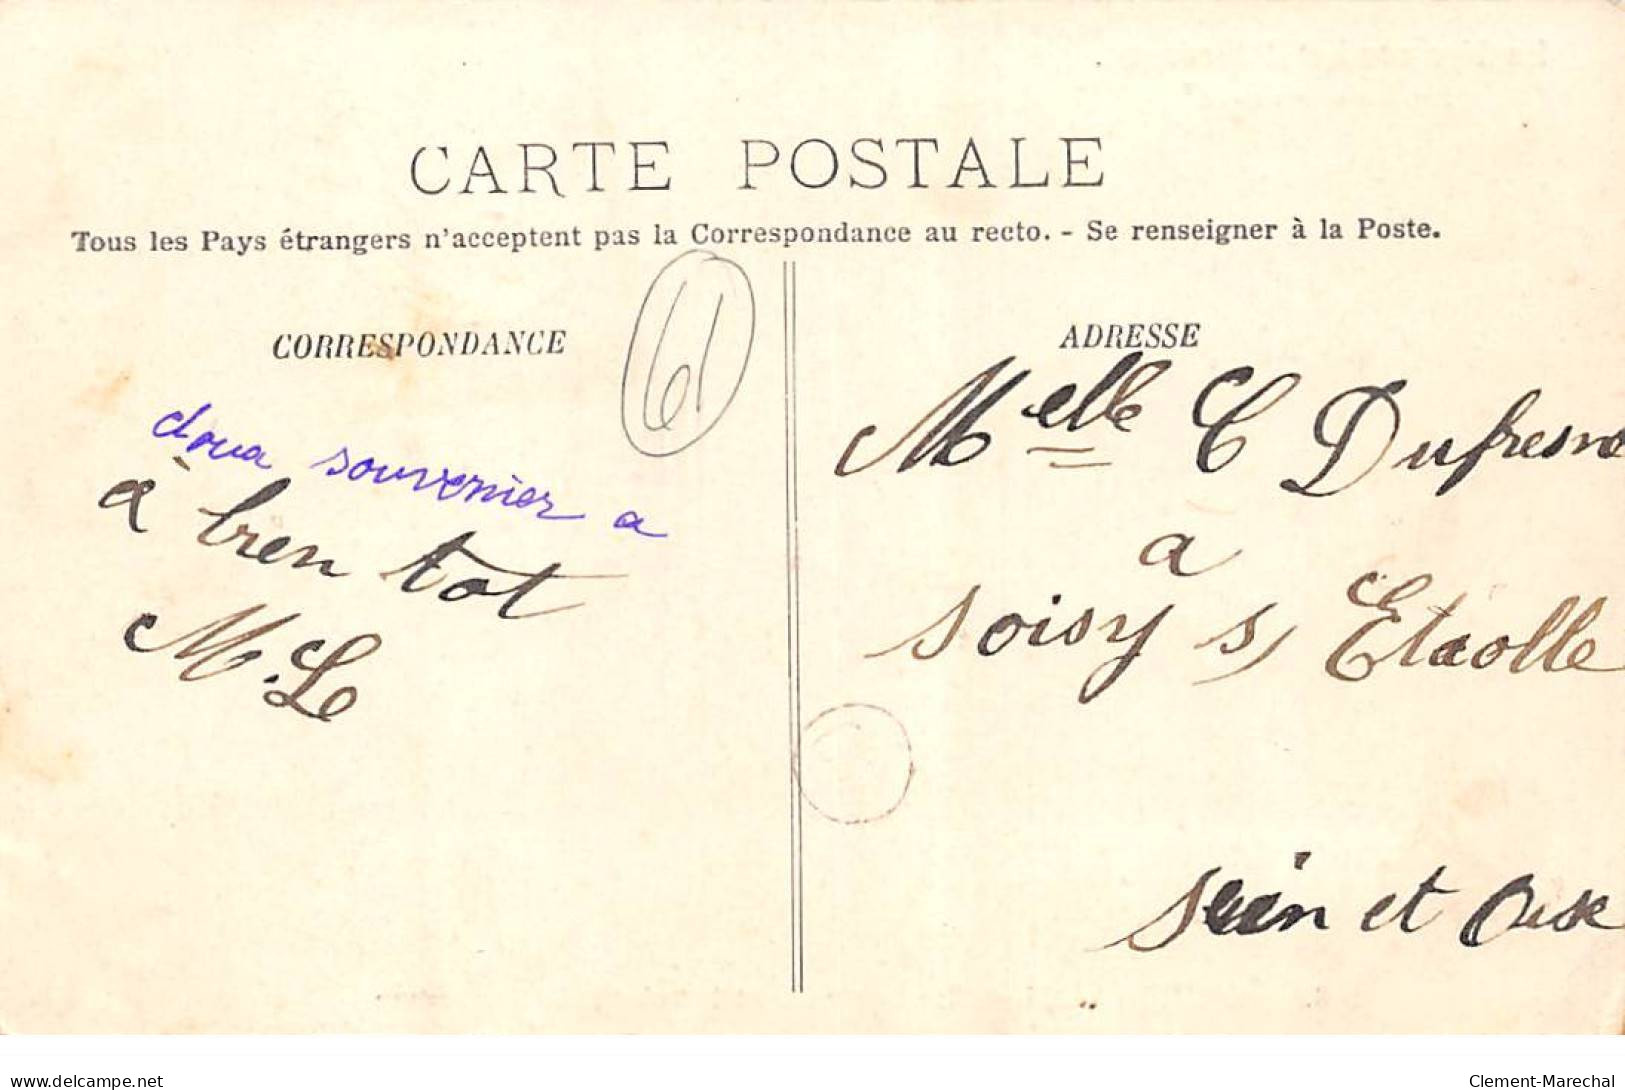 CARTE POSTALE
Tous les Pays étrangers n'acceptent pas la Correspondance au recto. - Se renseigner à la Poste.
CORRESPONDANCE
61
doua souvenier a
à bien tot
M. Le
ADRESSE
Melle C Dufresne
a
soisy s/ Etiolle
sein et Oise
delcampe.net
Clement-Marechal